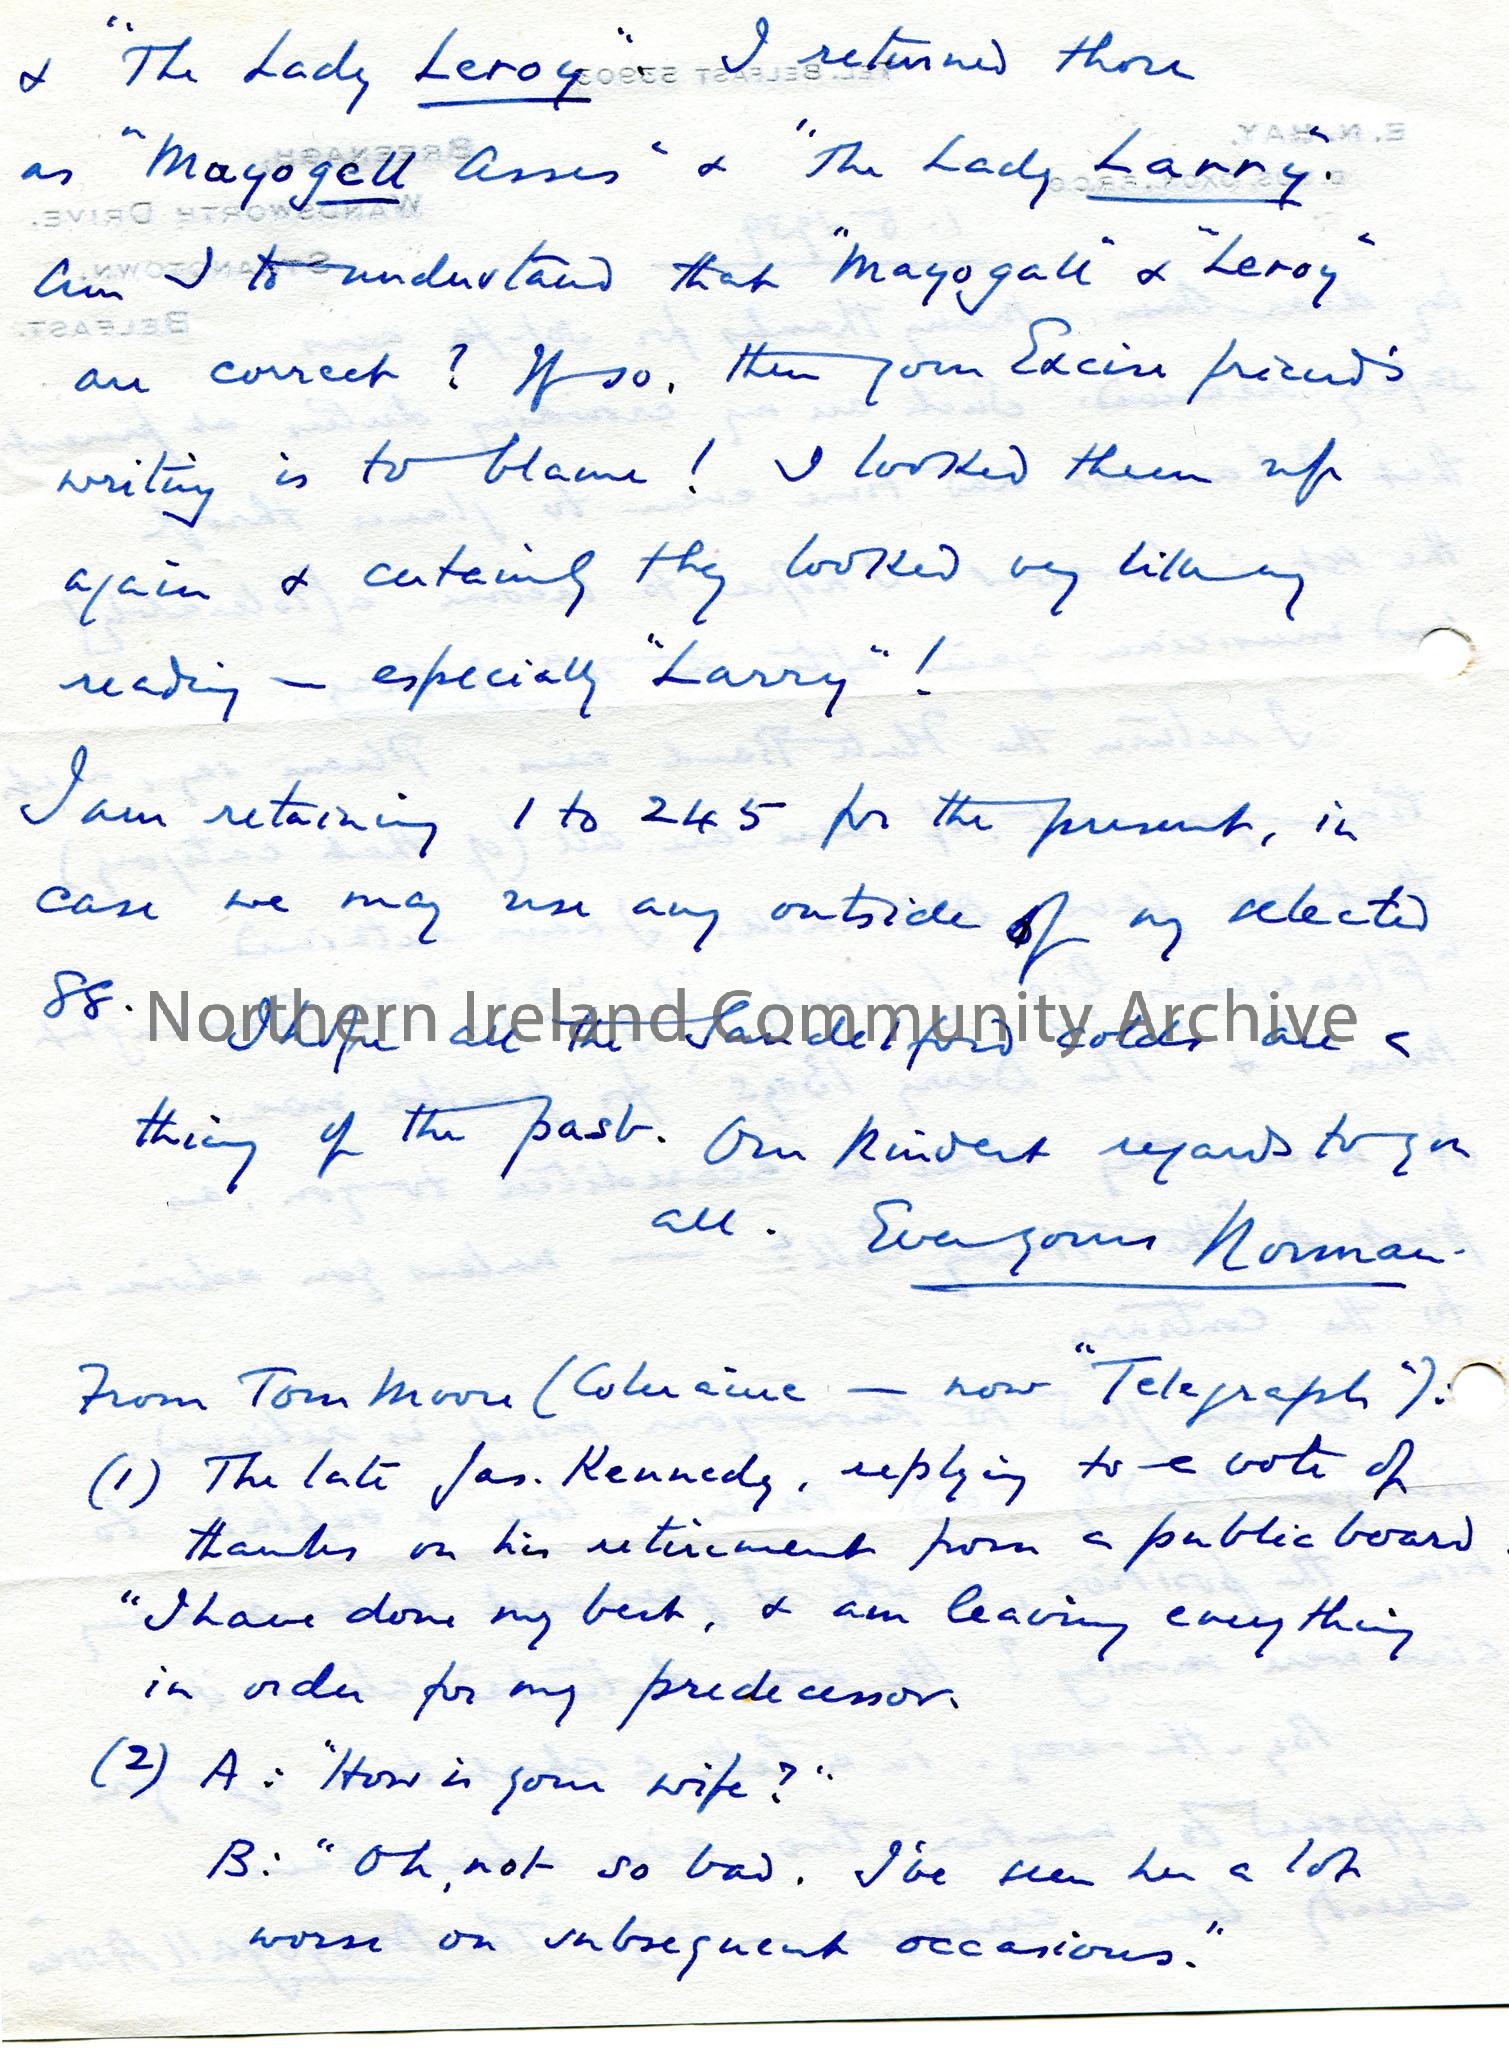 & "The Lady Leroy". I returned those
as "Mayogell Asses" & "The Lady Larry".
Am I to understand that "Mayogall" & "Leroy"
are correct? If so, then your Excise friend's
writing is to blame! I looked them up
again & certainly they looked very like my
reading — especially "Larry"!
I am retaining 1 to 245 for the present, in
case we may use any outside of my selected
88.
Northern Ireland Community Archive
I hope all the Sandelford colds are a
thing of the past. Our kindest regards to you
all. Ever yours Norman.
From Tom Moore (Coleraine — now "Telegraph"):
(1) The late Jas. Kennedy, replying to a vote of
thanks on his retirement from a public board.
"I have done my best, & am leaving everything
in order for my predecessor.
(2) A: "How is your wife?"
B: "Oh, not so bad. I've seen her a lot
worse on subsequent occasions."